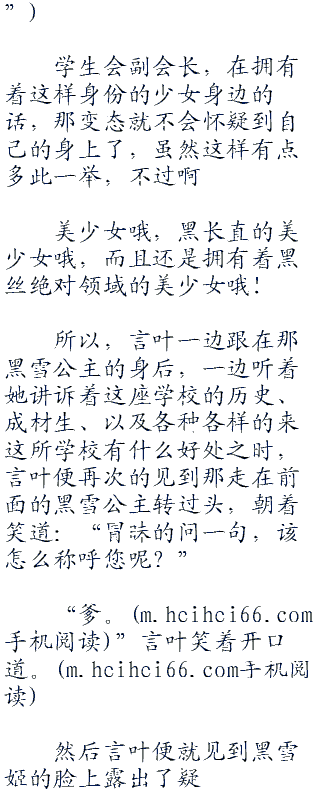 ”）
学生会副会长，在拥有
着这样身份的少女身边的
话，那变态就不会怀疑到自
己的身上了，虽然这样有点
多此一举，不过啊
美少女哦，黑长直的美
少女哦，而且还是拥有着黑
丝绝对领域的美少女哦！
所以，言叶一边跟在那
黑雪公主的身后，一边听着
她讲诉着这座学校的历史、
成材生、以及各种各样的来
这所学校有什么好处之时，
言叶便再次的见到那走在前
面的黑雪公主转过头，朝着
笑道：“冒沫的问一句，该
怎么称呼您呢？”
“爹。(m.hcihci66.com
手机阅读)”言叶笑着开口
道。(m.hcihci66.com手机阅
读)
然后言叶便就见到黑雪
姬的脸上露出了疑